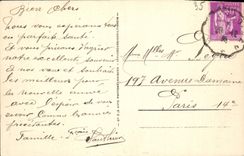 Bien Chers
Nous vous espérons tous
en parfaite santé.
Et vous prions d'agréer
notre excellent souvenir
A nos vœux et souhaits
les meilleurs pour
la nouvelle année
avec l'espoir de vous
avoir comme
Famille
35
M. Mlles
197 Avenue du Maine
Paris 14e